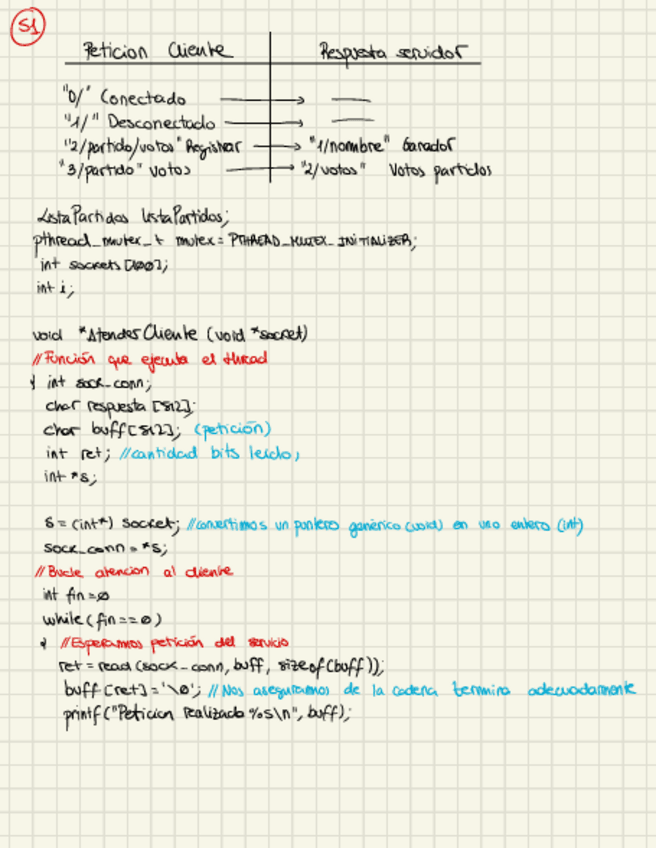 S1
Peticion Cliente Respuesta servidor
"0/" Conectado → —
"1/" Desconectado → —
"2/partido/votos" Registrar → "1/nombre" Ganador
"3/partido" votos → "2/votos" Votos partidos
ListaPartidos listaPartidos;
pthread_mutex_t mutex = PTHREAD_MUTEX_INITIALIZER;
int sockets[100];
int i;
void *AtenderCliente (void *socket)
//Función que ejecuta el thread
{ int sock_conn;
char respuesta [512];
char buff[512]; (petición)
int ret; //cantidad bits leido;
int *s;
s = (int*) socket; //convertimos un puntero genérico (void) en uno entero (int)
sock_conn = *s;
//Bucle atencion al cliente
int fin=0
while(fin==0)
{ //Esperamos petición del servicio
ret = read (sock_conn, buff, sizeof(buff));
buff[ret] = '\0'; //Nos aseguramos de la cadena termina adecuadamente
printf("Peticion realizada %s\n", buff);